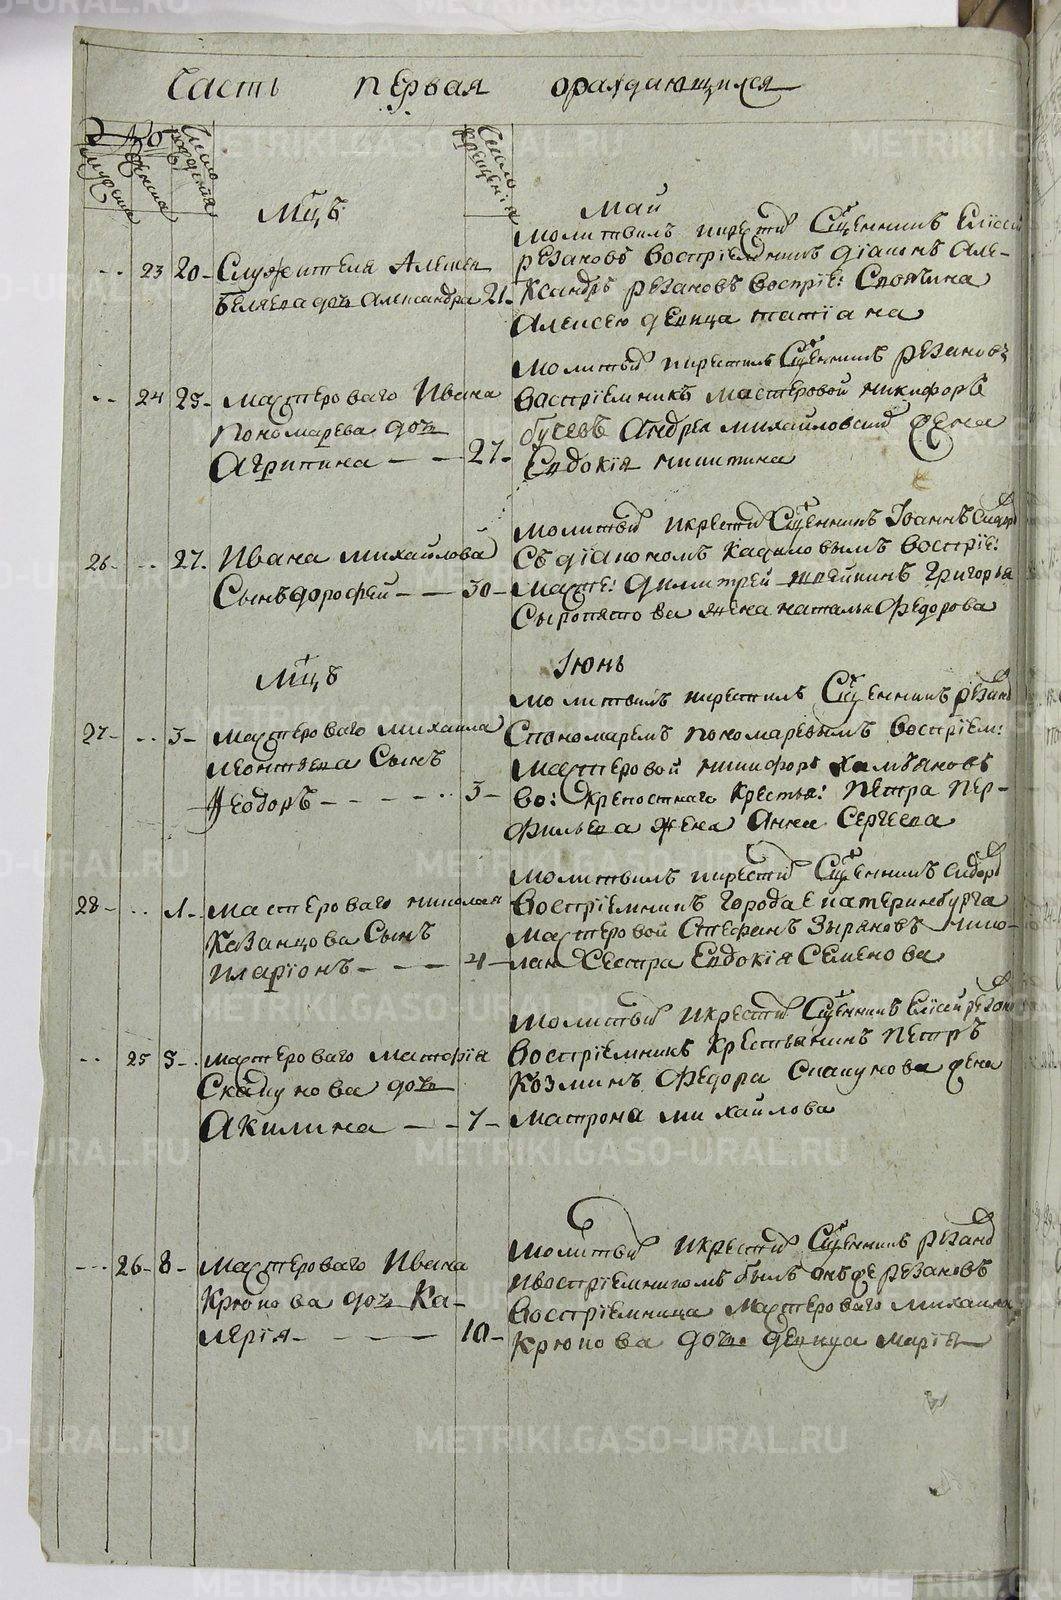 Часть первая ораждающихся
№
мужеска
женска
Число рожденія
Число крещенія
Мцъ Май
23 20 Служителя Алексея
Беляева дочь Александра 21
молитвилъ икрестил Сщенникъ Елісей
Резановъ воспріемникъ діаконъ Але-
ксандръ Резановъ воспріе:
Алексею девица татіана
24 25 мастероваго Ивана
Пономарева дочь
Агрипина 27
молитвил икрестилъ Сщенникъ Резановъ
воспріемникъ мастеровой никифоръ
бусевъ Андрея михайловских жена
Евдокія никитина
26 27 Ивана михайлова
Сынъ дорофей 30
молитвил икрестил Сщенникъ Іоаннъ Сидор
съ діакономъ кадиловымъ воспріе:
масте: димитрей Григорья
Сыропятова жена наталья Федорова
Мцъ Іюнь
27 3 мастероваго михаила
леонтьева Сынъ
Феодоръ 3
молитвилъ икрестилъ Сщенникъ Резанов
Спономаремъ пономаревымъ воспріем:
мастеровой никифоръ халтановъ
во: крепостнаго крестья: петра пер-
фильева жена Анна Сергеева
28 1 мастероваго николая
Казанцова Сынъ
иларіонъ 4
молитвилъ икрестил Сщенникъ Сидор
воспріемникъ города Екатеринбурга
мастеровой Стефанъ Зыряновъ нико-
лая Сестра Евдокія Семенова
25 5 мастероваго матфія
Скакунова дочь
Акилина 7
молитвил икрестил Сщенникъ Елісей Резанов
воспріемникъ крестьянинъ петръ
Козминъ Федора Скакунова жена
матрона михайлова
26 8 мастероваго Ивана
Крюкова дочь Ка-
лерія 10
молитвил икрестил Сщенникъ Резанов
ивоспріемникомъ былъ онъ же Резановъ
воспріемница мастероваго михаила
Крюкова дочь девица марія
METRIKI.GASO-URAL.RU